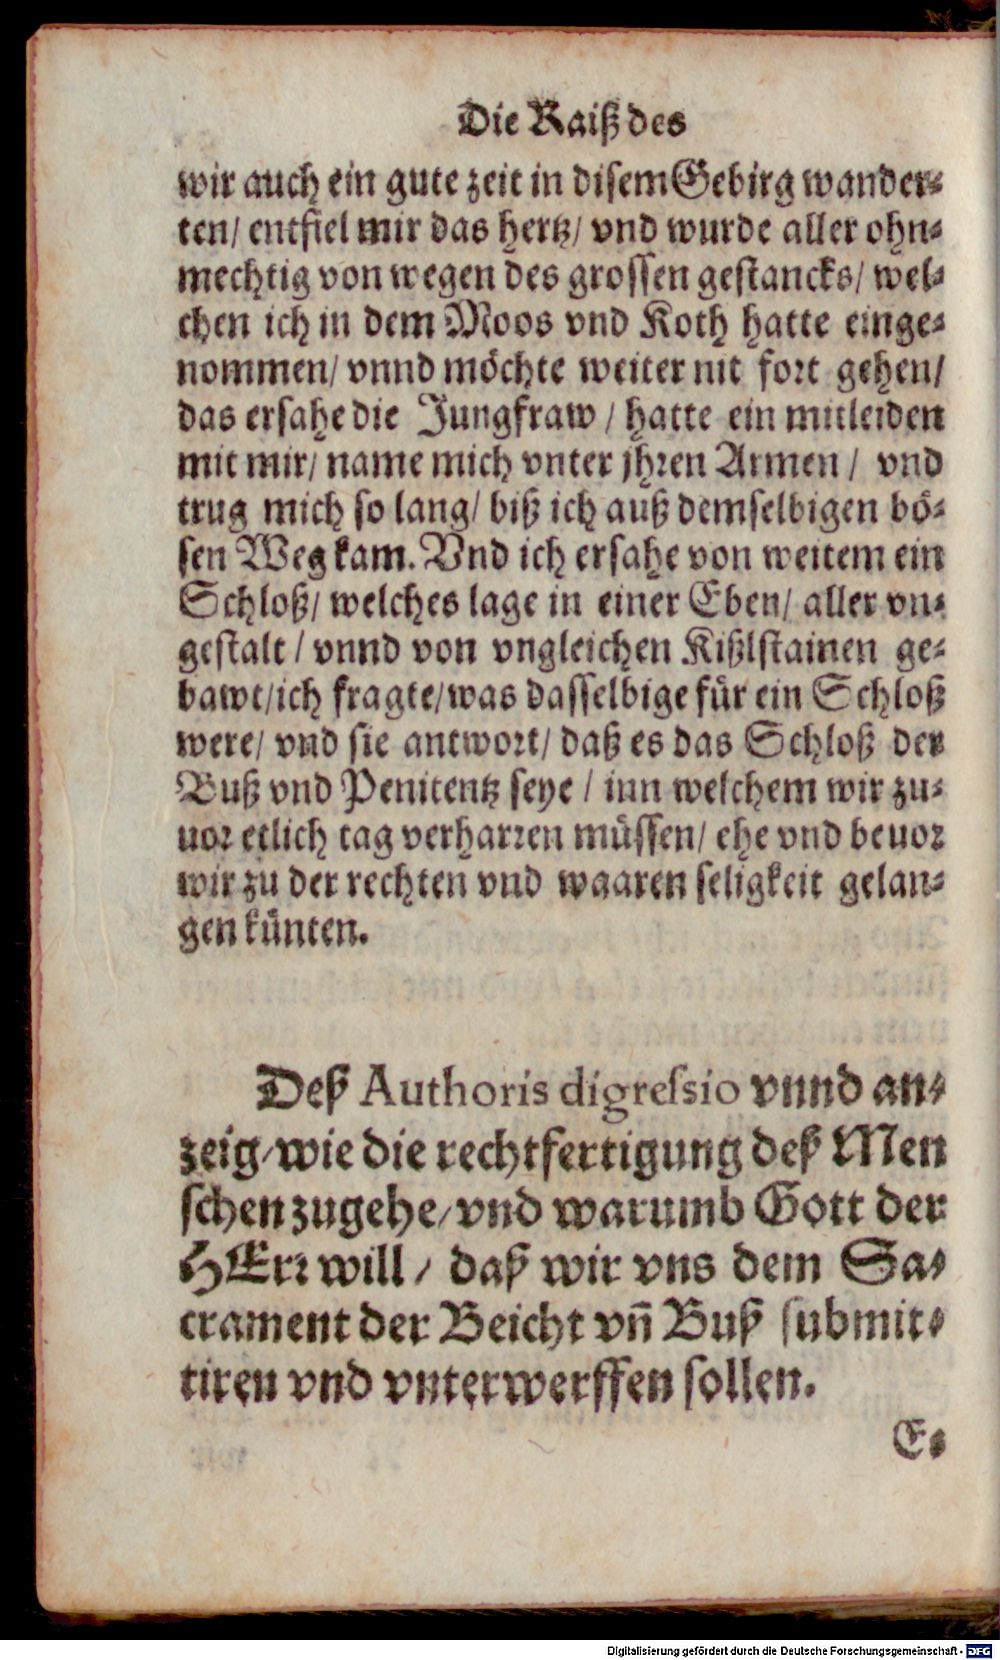 Die Raiß des
wir auch ein gute zeit in disem Gebirg wander-
ten/ entfiel mir das hertz/ vnd wurde aller ohn-
mechtig von wegen des grossen gestancks/ wel-
chen ich in dem Moos vnd Koth hatte einge-
nommen/ vnnd möchte weiter nit fort gehen/
das ersahe die Jungfraw / hatte ein mitleiden
mit mir/ name mich vnter jhren Armen / vnd
trug mich so lang/ biß ich auß demselbigen bö-
sen Weg kam. Vnd ich ersahe von weitem ein
Schloß/ welches lage in einer Eben/ aller vn-
gestalt / vnnd von vngleichen Kißlstainen ge-
bawt/ich fragte/was dasselbige für ein Schloß
were/ vnd sie antwort/ daß es das Schloß der
Buß vnd Penitentz seye / inn welchem wir zu-
uor etlich tag verharren müssen/ ehe vnd beuor
wir zu der rechten vnd waaren seligkeit gelan-
gen künten.
Deß Authoris digressio vnnd an-
zeig/wie die rechtfertigung deß Men
schen zugehe/vnd warumb Gott der
HErr will / daß wir vns dem Sa-
crament der Beicht vn̄ Buß submit-
tiren vnd vnterwerffen sollen.
E-
Digitalisierung gefördert durch die Deutsche Forschungsgemeinschaft - DFG